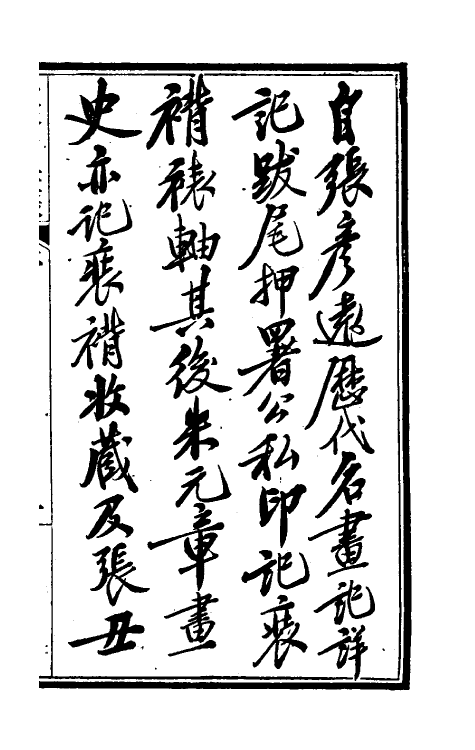 自張彥遠歷代名畫記詳
記跋尾押署公私印記裝
褙裱軸其後米元章畫
史亦記裝褙收藏及張丑